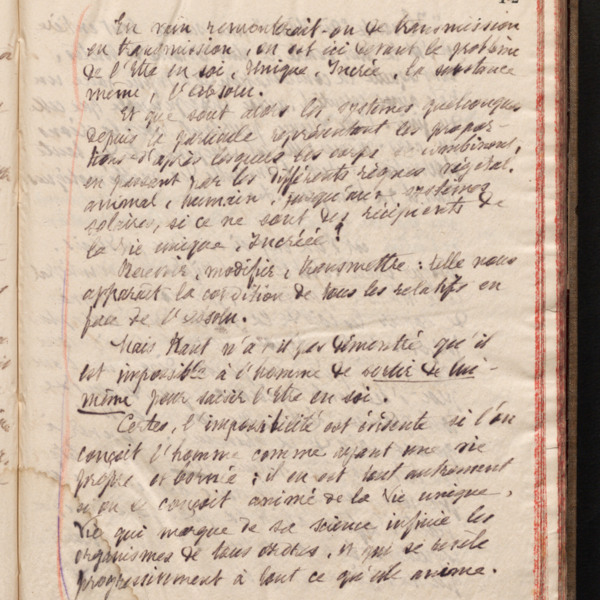 En vain remonterait-on de transmission
en transmission, on est ici devant le problème
de l'Etre en soi, Unique, Increé, la substance
même, l'Absolu.
Et que sont alors les systèmes quelconques
depuis la particule représentant les propor-
tions d'après lesquels les corps se combinent,
en passant par les différents règnes végétal,
animal, humain, jusqu'aux systèmes
solaires, si ce ne sont des récipients de
la vie unique, Incréée ?
Recevoir, modifier, transmettre : telle nous
apparaît la condition de tous les relatifs en
face de l'Absolu.
Mais Kant n'a-t-il pas démontré qu'il
est impossible à l'homme de sortir de lui-
même pour saisir l'Etre en soi.
Certes, l'impossibilité est évidente si l'on
conçoit l'homme comme ayant une vie
propre et bornée ; il en est tout autrement
si on le conçoit animé de la Vie unique,
Vie qui marque de sa science infinie les
organismes de tous ordres, et qui se révèle
progressivement à tout ce qu'elle anime.